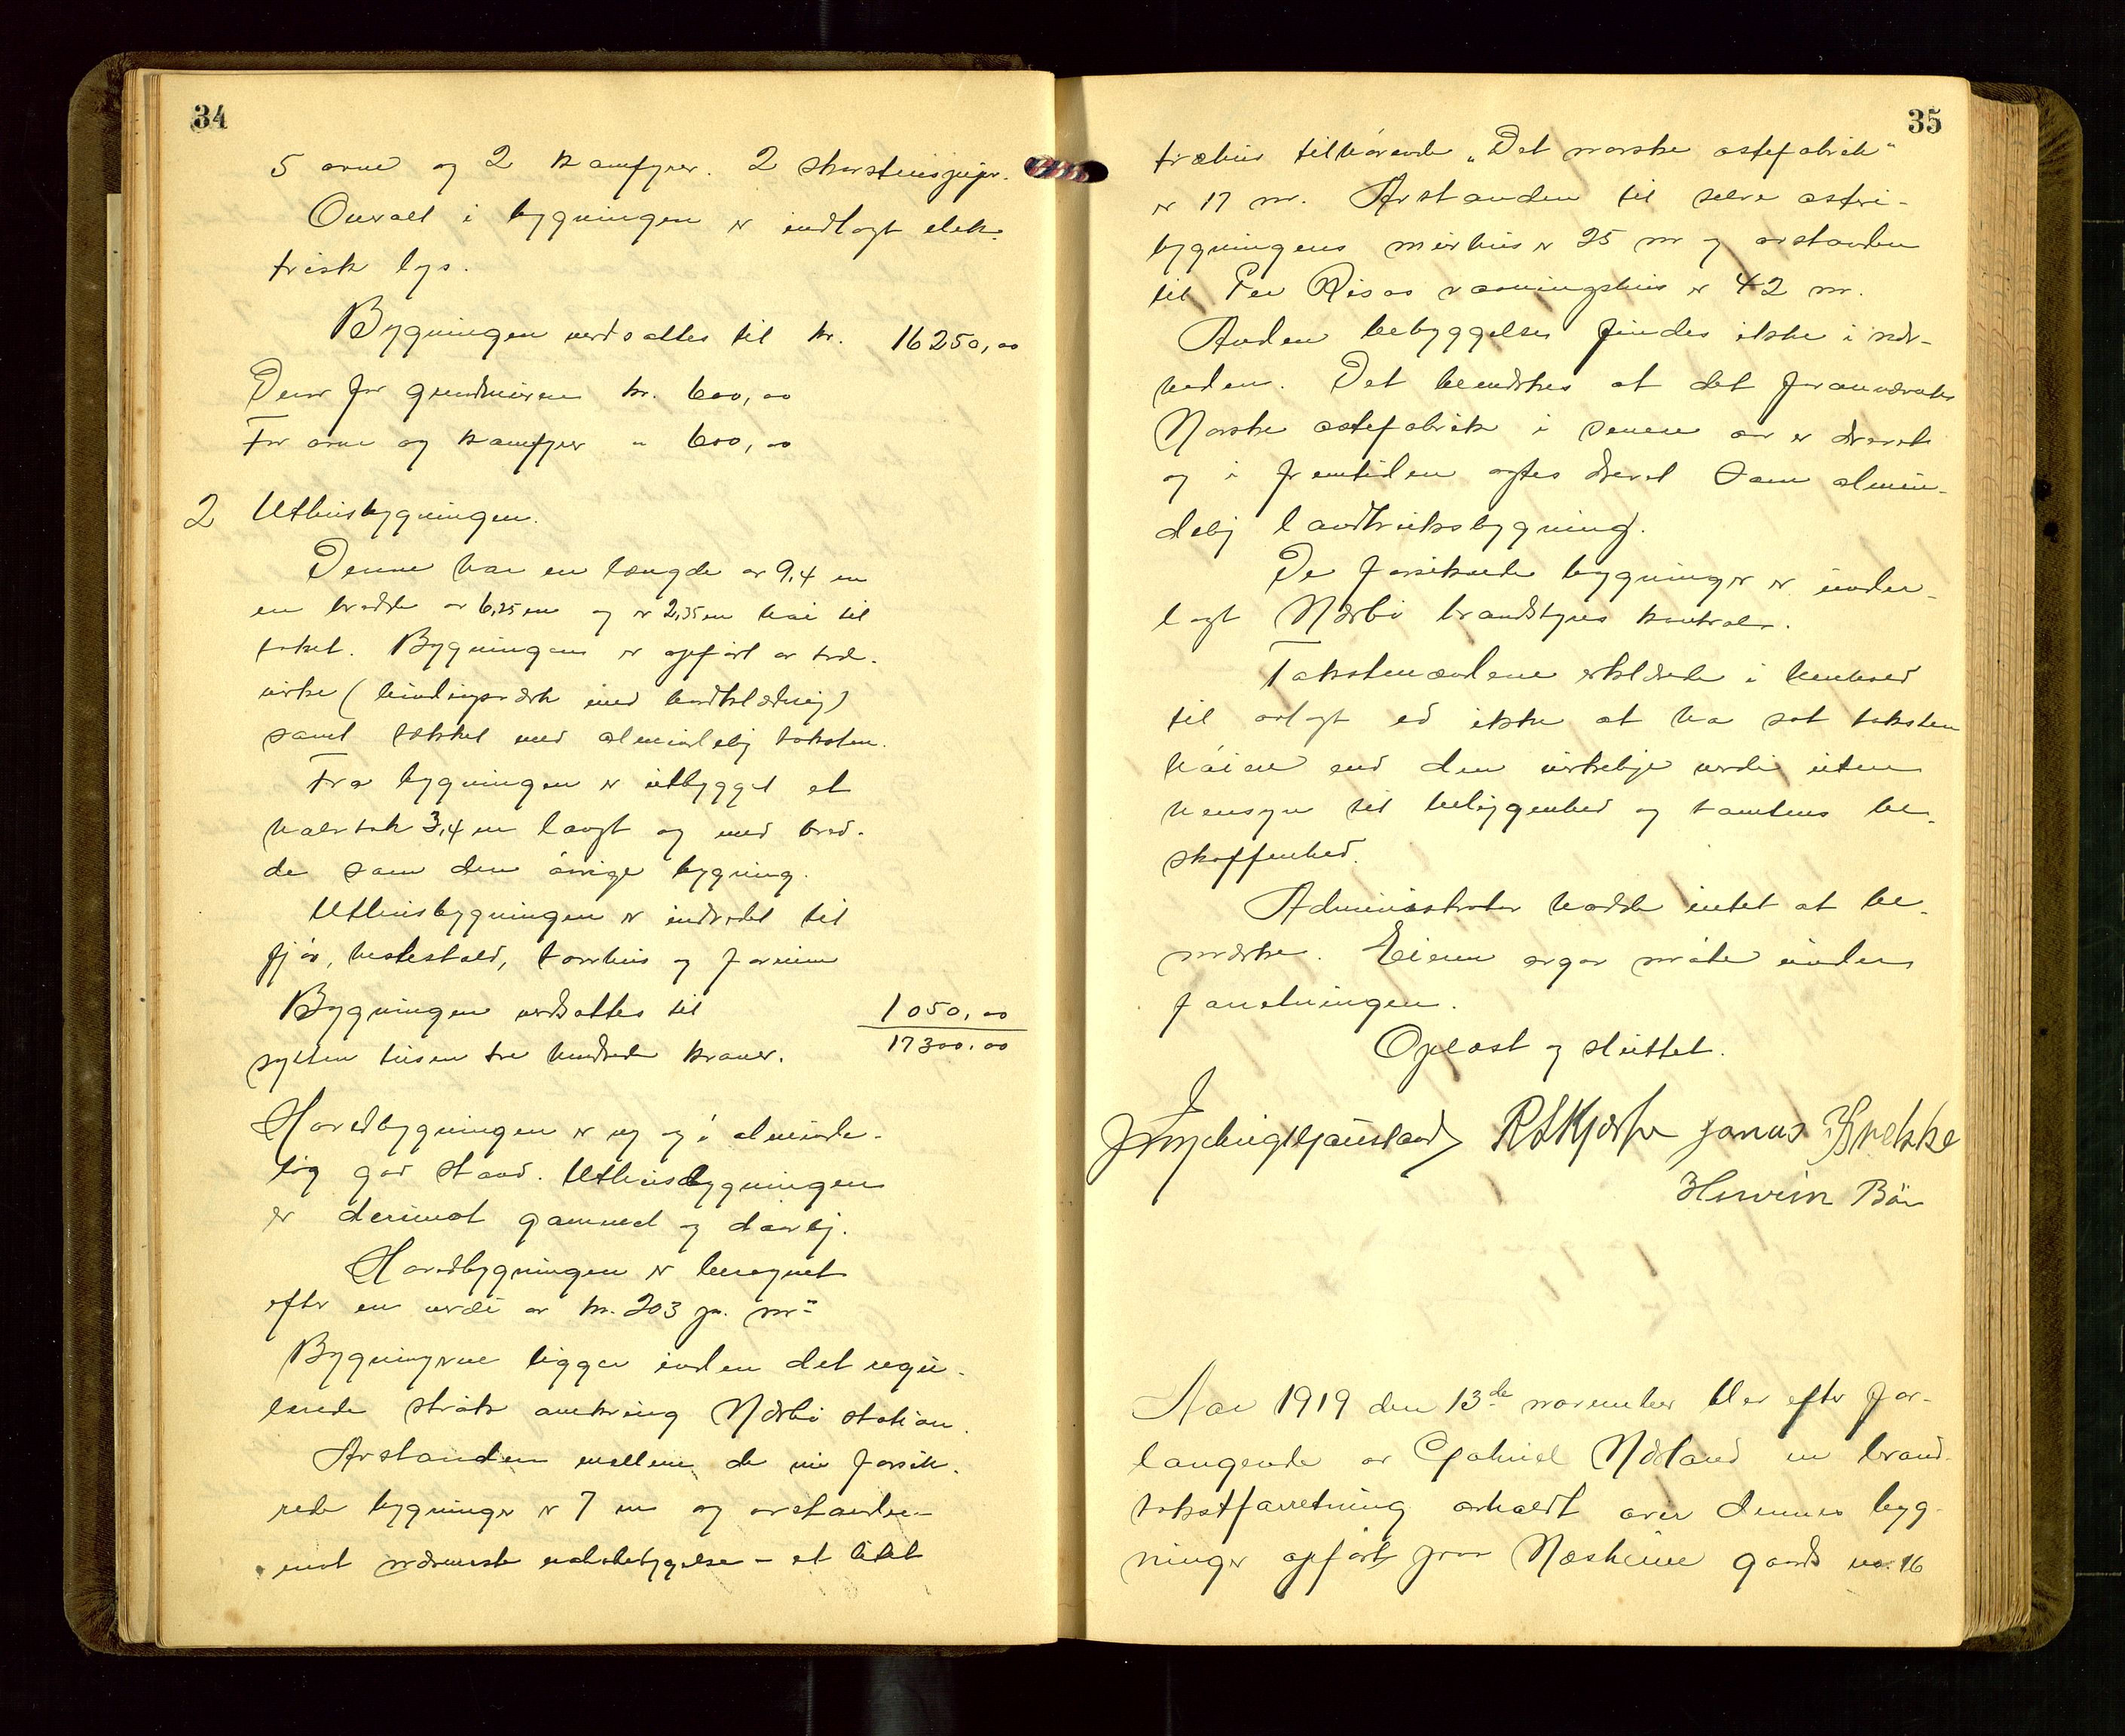 34
5 ovne og 2 komfyrer. 2 skorstenspiper.
Overalt i bygningen er indlagt elek-
trisk lys.
Bygningen verdsattes til kr. 16250,00
Derav for grundmuren kr. 600,00
For ovne og komfyrer " 600,00
2 Uthusbygningen.
Denne har en længde av 9,4 m
en bredde av 6,25 m og er 2,35 m høi til
taket. Bygningen er opført av træ-
virke (bindingsverk med bordklædning)
samt tækket med almindelig taksten.
Fra bygningen er utbygget et
halvtak 3,4 m langt og med bred-
de som den øvrige bygning.
Uthusbygningen er indredet til
fjøs, hestestald, torvhus og forrum
Bygningen verdsattes til 1050,00
sytten tusen tre hundrede kroner. 17300,00
Hovedbygningen er ny og i alminde-
lig god stand. Uthusbygningen
er derimot gammel og daarlig.
Hovedbygningen er beregnet
efter en verdi av kr. 203 pr. m²
Bygningerne ligger inden det regu-
lerede strøk omkring Nærbø station.
Avstanden mellem de nu forsik-
rede bygninger er 7 m og avstanden
mot nærmeste nabobebygelse - et litet
35
træhus tilhørende "Det norske ostefabrik"
er 17 m. Avstanden til selve osteri-
bygningens murhus er 25 m og avstanden
til Per Risas vaaningshus er 42 m.
Anden bebyggelse findes ikke i nær-
heden. Det bemerkes at det forannævnte
Norske ostefabrik i senere aar er drevet
og i fremtiden agtes drevet som almin-
delig landbruksbygning.
De forsikrede bygninger er under-
lagt Nærbø brandstyres kontrol.
Takstmændene erklærede i henhold
til avlagt ed ikke at ha sat taksten
høiere end den virkelige verdi uten
hensyn til beliggenhed og tomtens be-
skaffenhed.
Administrator hadde intet at be-
merke. Eieren avgav møte under
forretningen.
Oplæst og sluttet.
Jonas Brekke
Aar 1919 den 13de november blev efter for-
langende av Gabriel Nærland en brand-
takstforretning avholdt over dennes byg-
ninger opført paa Næsheim gaards no. 16